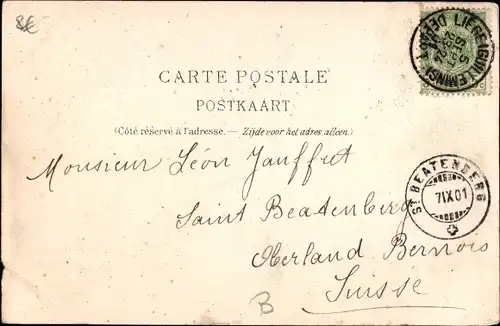 8€
LIÈGE (GUILLEMINS)
DÉPART
CARTE POSTALE
POSTKAART
(Côté réservé à l'adresse. — Zijde voor het adres alleen.)
Monsieur Léon Jauffret
Saint Beatenberg
Oberland Bernois
Suisse
ST BEATENBERG
7IX01
B